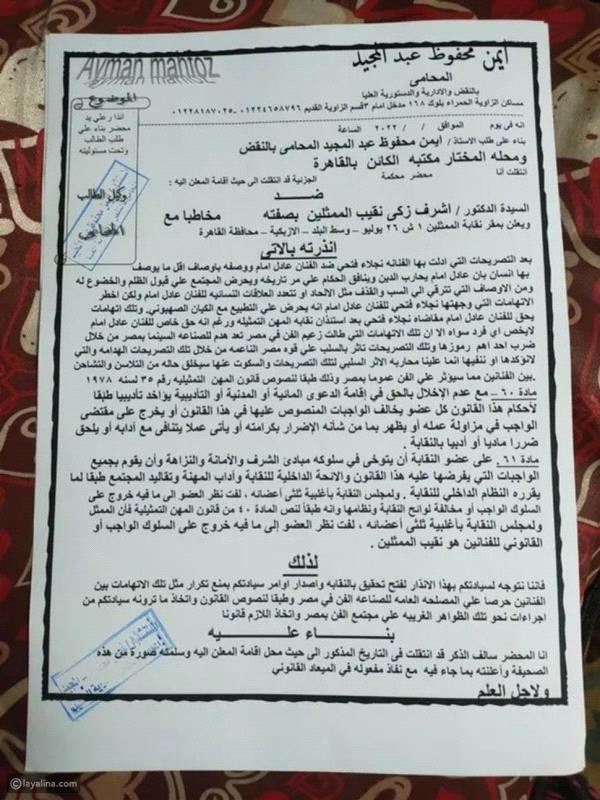 Ayman mahfoz
أيمن محفوظ عبد المجيد
المحامى
بالنقض والادارية والدستورية العليا
مساكن الزاوية الحمراء بلوك ١٦٨ مدخل امام ٣قسم الزاوية القديم ٠١٢٢٤٦٥٨٧٩٦ -٠١٢٢٨١٨٧٠٢٥
الموضوع
انذار علي يد
محضر بناء علي
طلب الطالب
وتحت مسئوليته
وكيل الطالب
المحامى
انه فى يوم الموافق / / ٢٠٢٢ الساعة
بناء على طلب الاستاذ / أيمن محفوظ عبد المجيد المحامى بالنقض
ومحله المختار مكتبه الكائن بالقاهرة
انتقلت أنا محضر محكمة الجزئية قد انتقلت الى حيث اقامة المعلن اليه :
ضد
السيدة الدكتور/ أشرف زكى نقيب الممثلين بصفته مخاطبا مع
ويعلن بمقر نقابة الممثلين ١ ش ٢٦ يوليو – وسط البلد – الازبكية – محافظة القاهرة
أنذرته بالاتى
بعد التصريحات التي ادلت بها الفنانه نجلاء فتحي ضد الفنان عادل امام ووصفه باوصاف اقل ما يوصف
بها انسان بان عادل امام يحارب الدين وينافق الحكام علي مر تاريخه ويحرض المجتمع علي قبول الظلم والخضوع له
ومن الاوصاف التي تترقي الي السب والقذف مثل الالحاد او تتعدد العلاقات النسائيه للفنان عادل امام ولكن اخطر
الاتهامات التي وجهتها نجلاء فتحي للفنان عادل امام انه يحرض علي التطبيع مع الكيان الصهيوني. وتلك اتهامات
يحق للفنان عادل امام مقاضاه نجلاء فتحي بعد استئذان نقابه المهن التمثيله ورغم انه حق خاص للفنان عادل امام
لايخص اي فرد سواه الا ان تلك الاتهامات التي طالت زعيم الفن في مصر تعد هدم للصناعه السينما بمصر من خلال
ضرب احد اهم رموزها وتلك التصريحات تاثر بالسلب علي قوه مصر الناعمه من خلال تلك التصريحات الهدامه والتي
لانؤكدها او ننفيها انما علينا محاربه الاثر السلبي لتلك التصريحات والسكوت عنها سيخلق حاله من التلاسن والتشاحن
بين الفنانين مما سيؤثر علي الفن عموما بمصر وذلك طبقا لنصوص قانون المهن التمثيليه رقم ٣٥ لسنه ١٩٧٨.
مادة ٦٠ – مع عدم الإخلال بالحق في إقامة الدعوى المائية أو المدنية أو التأديبية يؤاخد تأديبيا طبقا
لأحكام هذا القانون كل عضو يخالف الواجبات المنصوص عليها في هذا القانون أو يخرج على مقتضى
الواجب في مزاولة عمله أو يظهر بما من شأنه الإضرار بكرامته أو يأتى عملا يتنافى مع آدابه أو يلحق
ضررا ماديا أو أدبيا بالنقابة.
مادة ٦١ . على عضو النقابة أن يتوخى في سلوكه مبادئ الشرف والأمانة والنزاهة وأن يقوم بجميع
الواجبات التي يفرضها عليه هذا القانون والائحة الداخلية للنقابة وآداب المهنة وتقاليد المجتمع طبقا لما
يقرره النظام الداخلي للنقابة . ولمجلس النقابة بأغلبية ثلثى أعضائه ، لفت نظر العضو الى ما فيه خروج على
السلوك الواجب أو مخالفة لوائح النقابة ونظامها وانه طبقا لنص المادة ٤٠ من قانون المهن التمثيلية فأن الممثل
ولمجلس النقابة بأغلبية ثلثى أعضائه ، لفت نظر العضو إلى ما فيه خروج على السلوك الواجب أو
القانوني للفنانين هو نقيب الممثلين .
لذلك
فاننا نتوجه لسيادتكم بهذا الانذار لفتح تحقيق بالنقابه واصدار اوامر سيادتكم بمنع تكرار مثل تلك الاتهامات بين
الفنانين حرصا علي المصلحه العامه للصناعه الفن في مصر وطبقا لنصوص القانون واتخاذ ما ترونه سيادتكم من
اجراءات نحو تلك الظواهر الغريبه علي مجتمع الفن بمصر واتخاذ اللازم قانونا
بناء عليه
انا المحضر سالف الذكر قد انتقلت فى التاريخ المذكور الى حيث محل اقامة المعلن اليه وسلمته صورة من هذه
الصحيفة وأعلنته بما جاء فيه مع نفاذ مفعوله في الميعاد القانوني
ولاجل العلم
©layalina.com